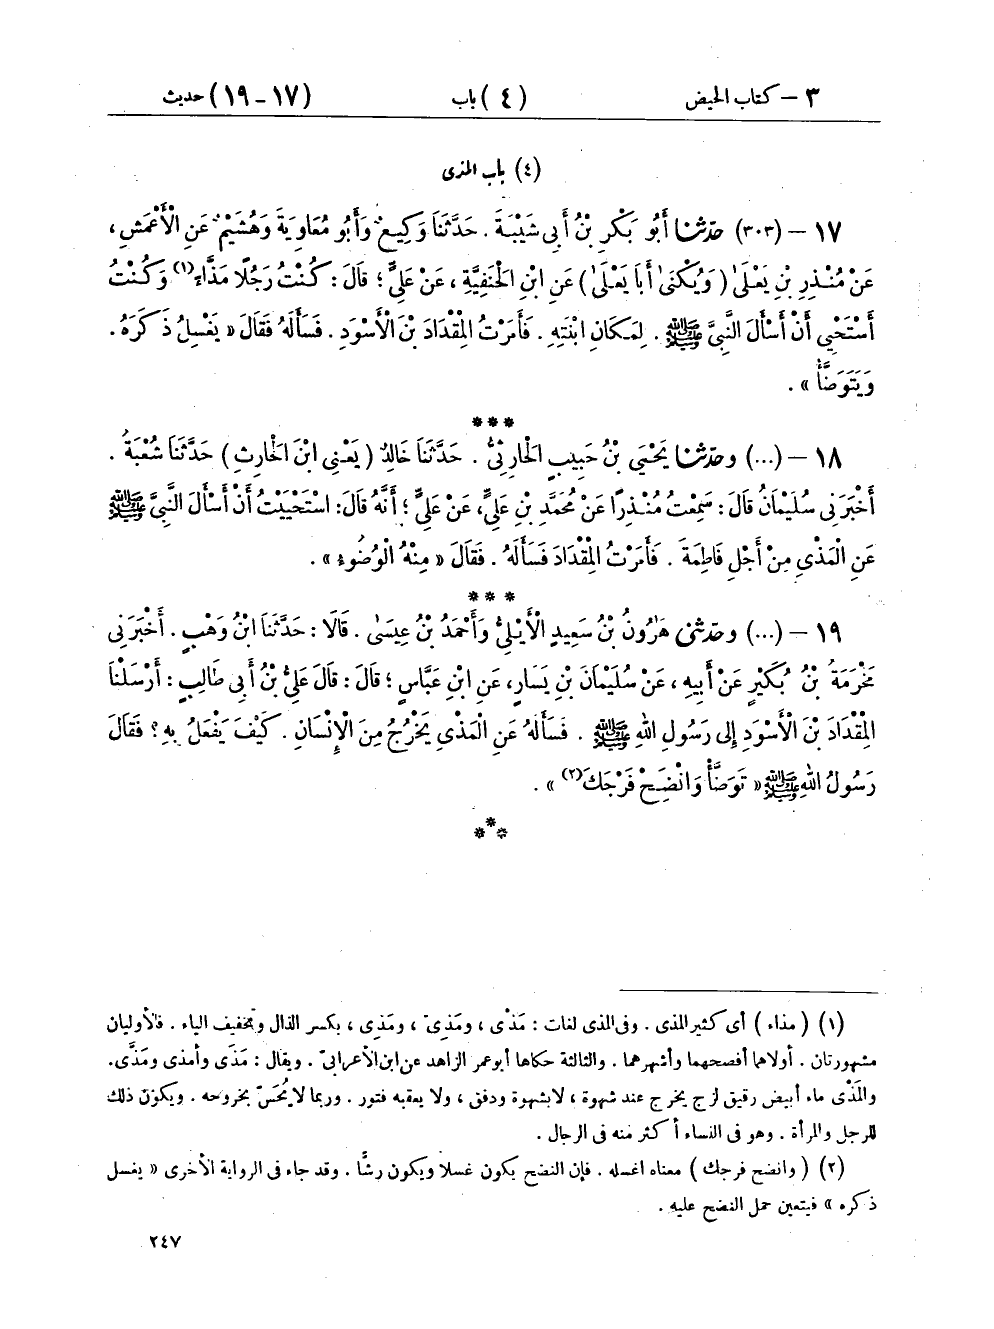 ٣ – كتاب الحيض (٤) باب (١٧-١٩) حديث
(٤) باب المذى
١٧ – (٣٠٣) حدثنا أَبُو بَكْرِ بْنُ أَبِي شَيْبَةَ . حَدَّثَنَا وَكِيعٌ وَأَبُو مُعَاوِيَةَ وَهُشَيْمٌ عَنِ الْأَعْمَشِ ،
عَنْ مُنْذِرِ بْنِ يَعْلَىٰ ( وَيُكْنَىٰ أَبَا يَعْلَىٰ ) عَنِ ابْنِ الْحَنَفِيَّةِ ، عَنْ عَلِيٍّ ؛ قَالَ : كُنْتُ رَجُلًا مَذَّاءً (١) وَكُنْتُ
أَسْتَحْيِي أَنْ أَسْأَلَ النَّبِيَّ ﷺ . لِمَكَانِ ابْنَتِهِ . فَأَمَرْتُ الْمِقْدَادَ بْنَ الْأَسْوَدِ . فَسَأَلَهُ فَقَالَ « يَغْسِلُ ذَكَرَهُ .
وَيَتَوَضَّأُ » .
***
١٨ – (...) وحدثنا يَحْيَى بْنُ حَبِيبٍ الْحَارِثِيُّ . حَدَّثَنَا خَالِدٌ ( يَعْنِي ابْنَ الْحَارِثِ ) حَدَّثَنَا شُعْبَةُ .
أَخْبَرَنِي سُلَيْمَانُ قَالَ : سَمِعْتُ مُنْذِرًا عَنْ مُحَمَّدِ بْنِ عَلِيٍّ، عَنْ عَلِيٍّ ؛ أَنَّهُ قَالَ: اسْتَحْيَيْتُ أَنْ أَسْأَلَ النَّبِيَّ ﷺ
عَنِ الْمَذْيِ مِنْ أَجْلِ فَاطِمَةَ . فَأَمَرْتُ الْمِقْدَادَ فَسَأَلَهُ . فَقَالَ « مِنْهُ الْوُضُوءُ » .
***
١٩ – (...) وحدثني هَارُونُ بْنُ سَعِيدٍ الْأَيْلِيُّ وَأَحْمَدُ بْنُ عِيسَىٰ . قَالَا : حَدَّثَنَا ابْنُ وَهْبٍ . أَخْبَرَنِي
مَخْرَمَةُ بْنُ بُكَيْرٍ عَنْ أَبِيهِ ، عَنْ سُلَيْمَانَ بْنِ يَسَارٍ، عَنِ ابْنِ عَبَّاسٍ ؛ قَالَ : قَالَ عَلِيُّ بْنُ أَبِي طَالِبٍ : أَرْسَلْنَا
الْمِقْدَادَ بْنَ الْأَسْوَدِ إِلَى رَسُولِ اللهِ ﷺ . فَسَأَلَهُ عَنِ الْمَذْيِ يَخْرُجُ مِنَ الْإِنْسَانِ . كَيْفَ يَفْعَلُ بِهِ ؟ فَقَالَ
رَسُولُ اللهِ ﷺ « تَوَضَّأْ وَانْضَحْ فَرْجَكَ (٢) » .
***
(١) ( مذاء ) أى كثير المذى . وفى المذى لغات : مَذْى ، ومَذِىّ ، ومَذِى ، بكسر الذال وتخفيف الياء . فالأوليان
مشهورتان . أولاهما أفصحهما وأشهرهما . والثالثة حكاها أبو عمر الزاهد عن ابن الأعرابىّ . ويقال : مَذَى وأمذى ومَذَّى.
والمَذْى ماء أبيض رقيق لزج يخرج عند شهوة ، لا بشهوة ودفق ، ولا يعقبه فتور . وربما لا يُحَسّ بخروجه . ويكون ذلك
للرجل والمرأة . وهو فى النساء أكثر منه فى الرجال .
(٢) ( وانضح فرجك ) معناه اغسله . فإن النضح يكون غسلا ويكون رشًّا . وقد جاء فى الرواية الأخرى « يغسل
ذكره » فيتعين حمل النضح عليه .
٢٤٧